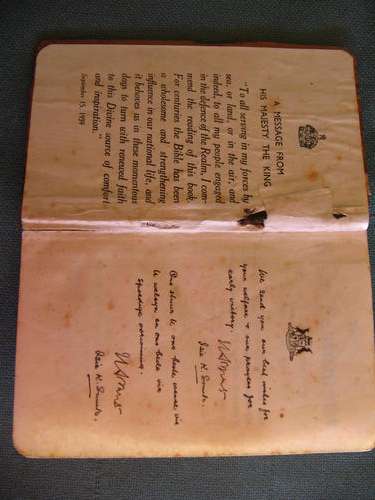 A MESSAGE FROM
HIS MAJESTY THE KING
"To all serving in my forces by
sea, or land, or in the air, and
indeed, to all my people engaged
in the defence of the Realm, I com-
mend the reading of this book.
For centuries the Bible has been
a wholesome and strengthening
influence in our national life, and
it behoves us in these momentous
days to turn with renewed faith
to this Divine source of comfort
and inspiration."
September 15, 1939
We send you our best wishes for
your welfare & our prayers for
early victory.
Smuts
Isie K. Smuts.
Ons stuur u ons beste wense vir
u welsyn en ons bede vir
spoedige oorwinning.
Smuts
Isie K. Smuts.